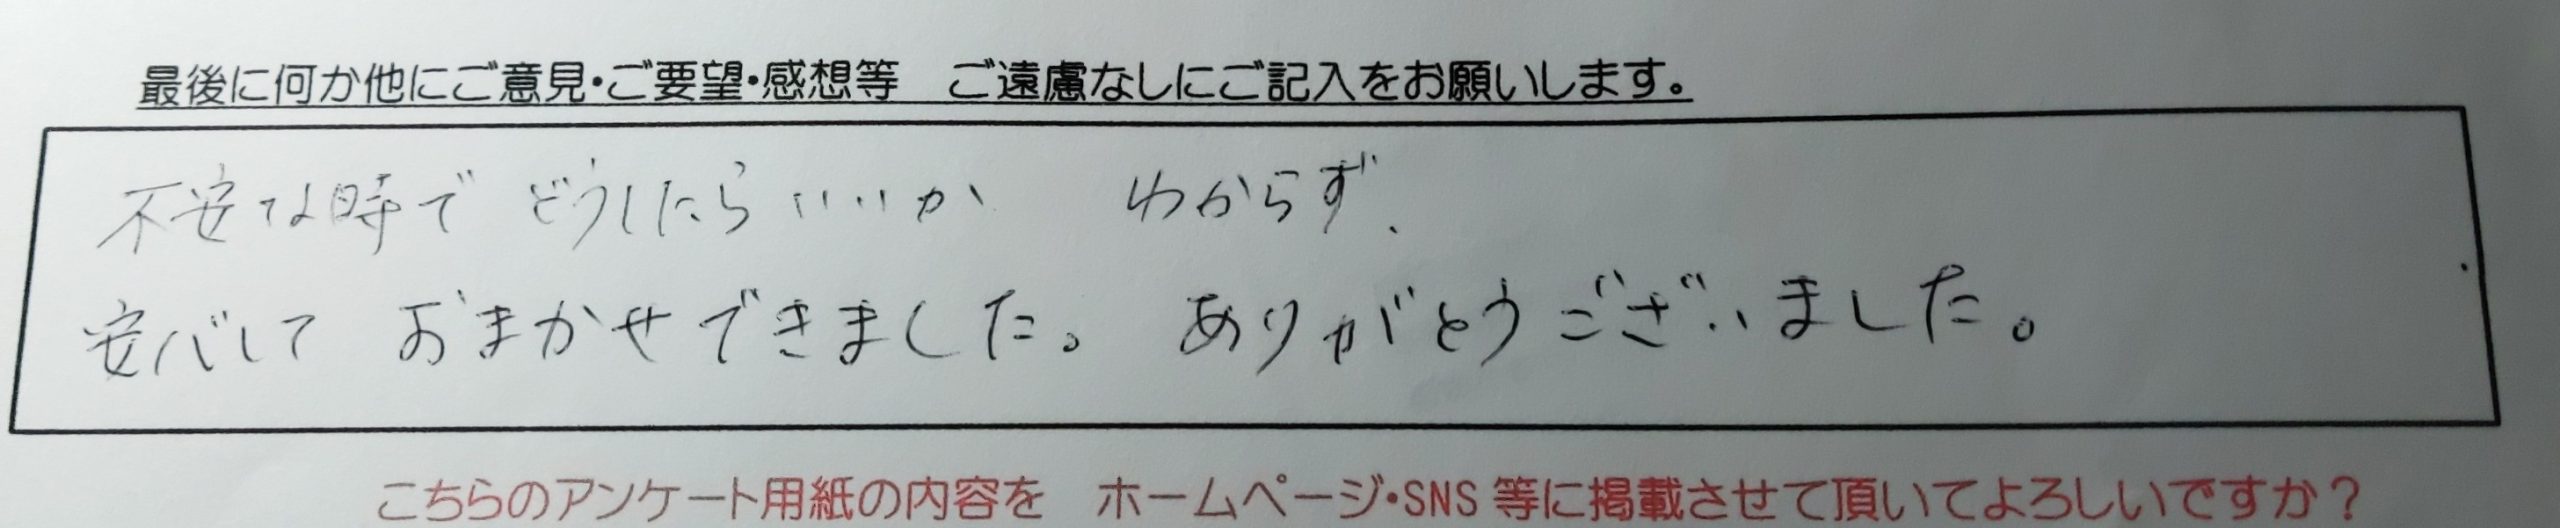 最後に何か他にご意見・ご要望・感想等　ご遠慮なしにご記入をお願いします。
不安な時で どうしたらいいか わからず、
安心して おまかせできました。 ありがとうございました。
こちらのアンケート用紙の内容を　ホームページ・SNS 等に掲載させて頂いてよろしいですか？